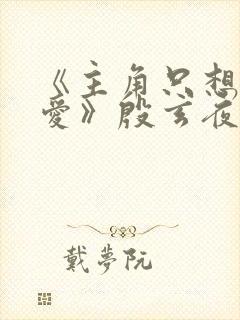 《主角只想
爱》殷玄夜
戴夢阮